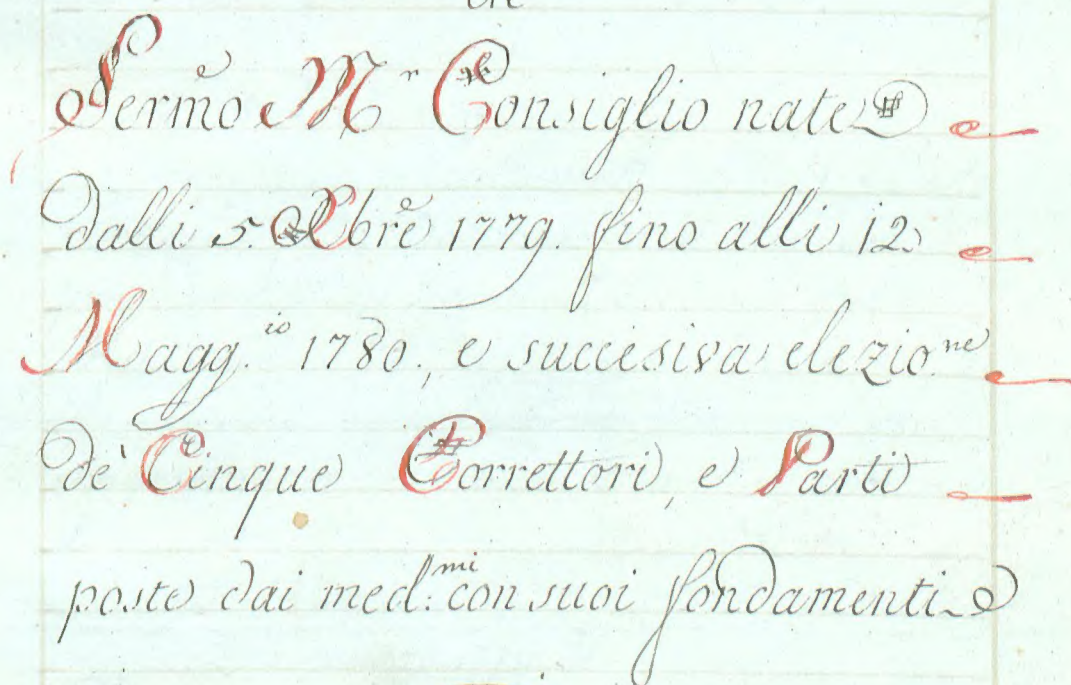 Sermo Mr Consiglio nate
dalli 5. Xbre 1779. fino alli 12
Magg.io 1780., e succesiva elezio.ne
dè Cinque Correttori, e Parti
poste dai med:mi con suoi fondamenti